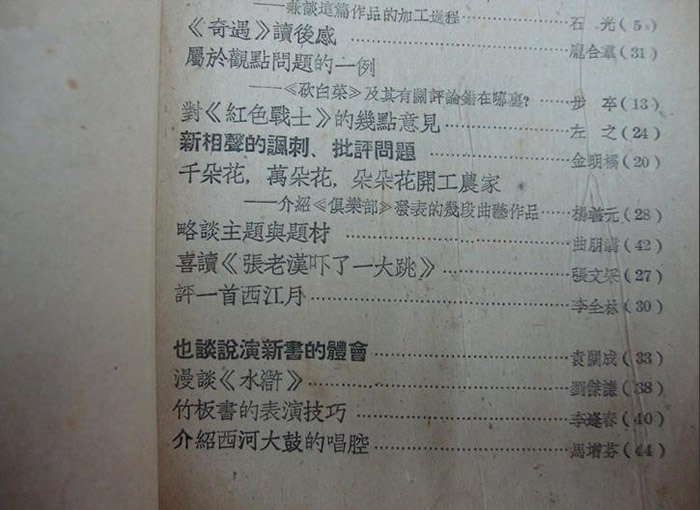 ——兼談這篇作品的加工過程……石 光(5)
《奇遇》讀後感……龐合羣(31)
屬於觀點問題的一例
——《砍白菜》及其有關評論錯在哪裏?……步 卒(13)
對《紅色戰士》的幾點意見……左 之(24)
新相聲的諷刺、批評問題……金明楊(20)
千朵花，萬朵花，朵朵花開工農家
——介紹《俱樂部》發表的幾段曲藝作品……楊蓍元(28)
略談主題與題材……曲朋(42)
喜讀《張老漢吓了一大跳》……張文(27)
評一首西江月……李全(30)
也談說演新書的體會……袁闊成(33)
漫談《水滸》……劉傑謙(38)
竹板書的表演技巧……李逢春(40)
介紹西河大鼓的唱腔……馬增芬(44)